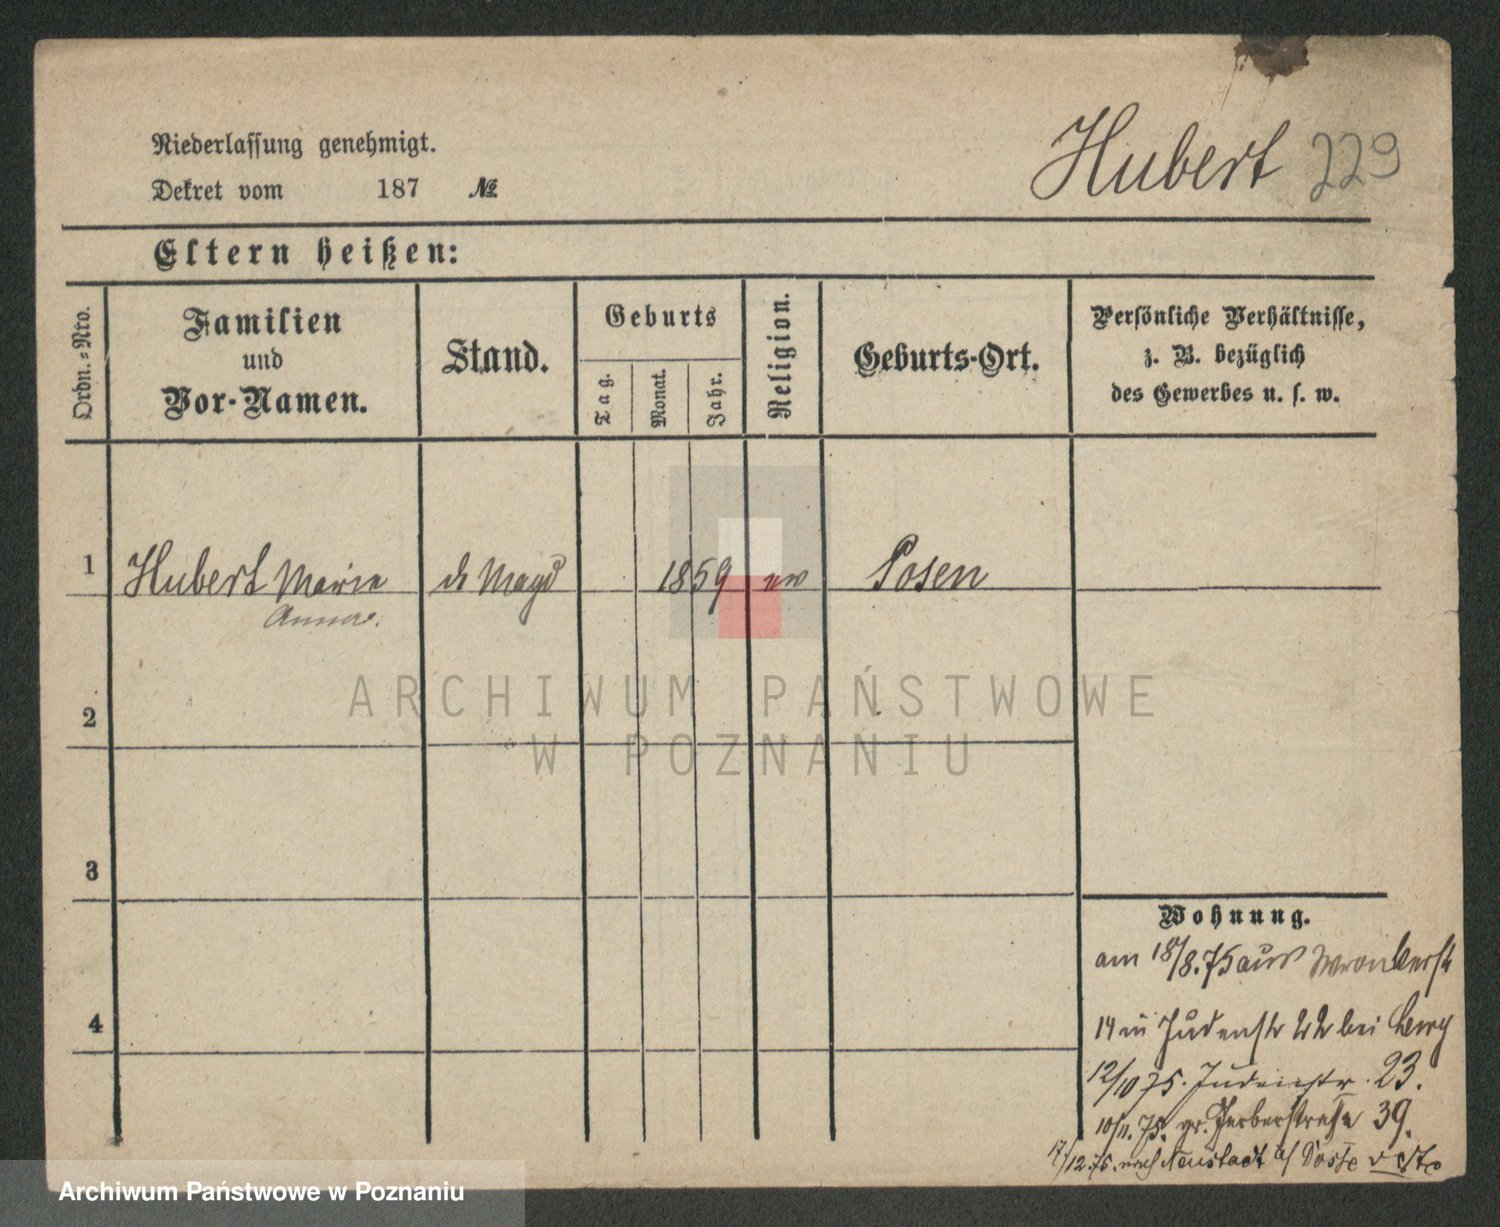 Niederlassung genehmigt.
Dekret vom 187 №
Hubert 229
Eltern heißen:
Ordn.=Nro.
Familien
und
Vor-Namen.
Stand.
Geburts
Tag.
Monat.
Jahr.
Religion.
Geburts-Ort.
Persönliche Verhältnisse,
z. B. bezüglich
des Gewerbes u. s. w.
1 Hubert Marie d Magd 1859 ev Posen
Anna.
2
3
4
Wohnung.
am 18/8.75 aus
14 in Judenstr 22 bei
12/10 75. Judenstr. 23.
10/11. 75. gr. Gerberstraße 39.
17/12.75. nach Neustadt a/ Dosse
ARCHIWUM PAŃSTWOWE
W POZNANIU
Archiwum Państwowe w Poznaniu